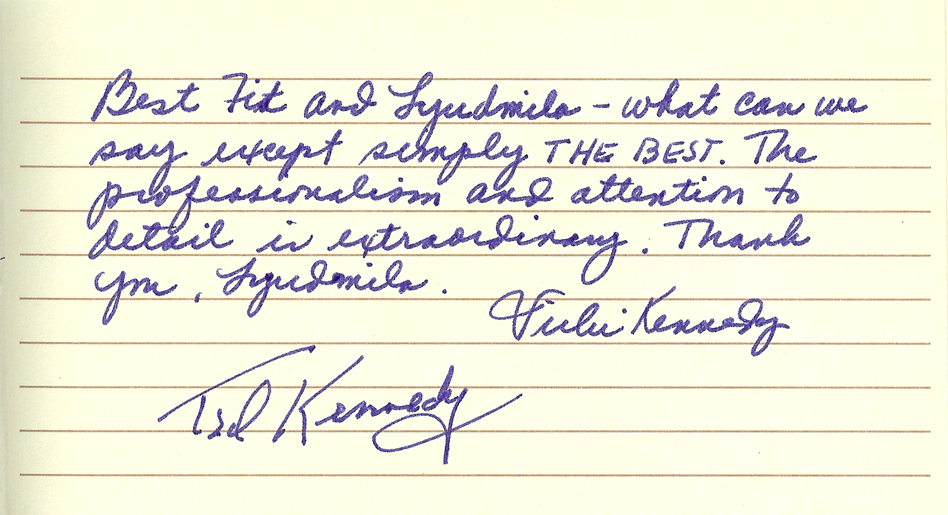 Best Fit and Lyudmila – what can we
say except simply THE BEST. The
professionalism and attention to
detail is extraordinary. Thank
you, Lyudmila.
Vicki Kennedy
Ted Kennedy